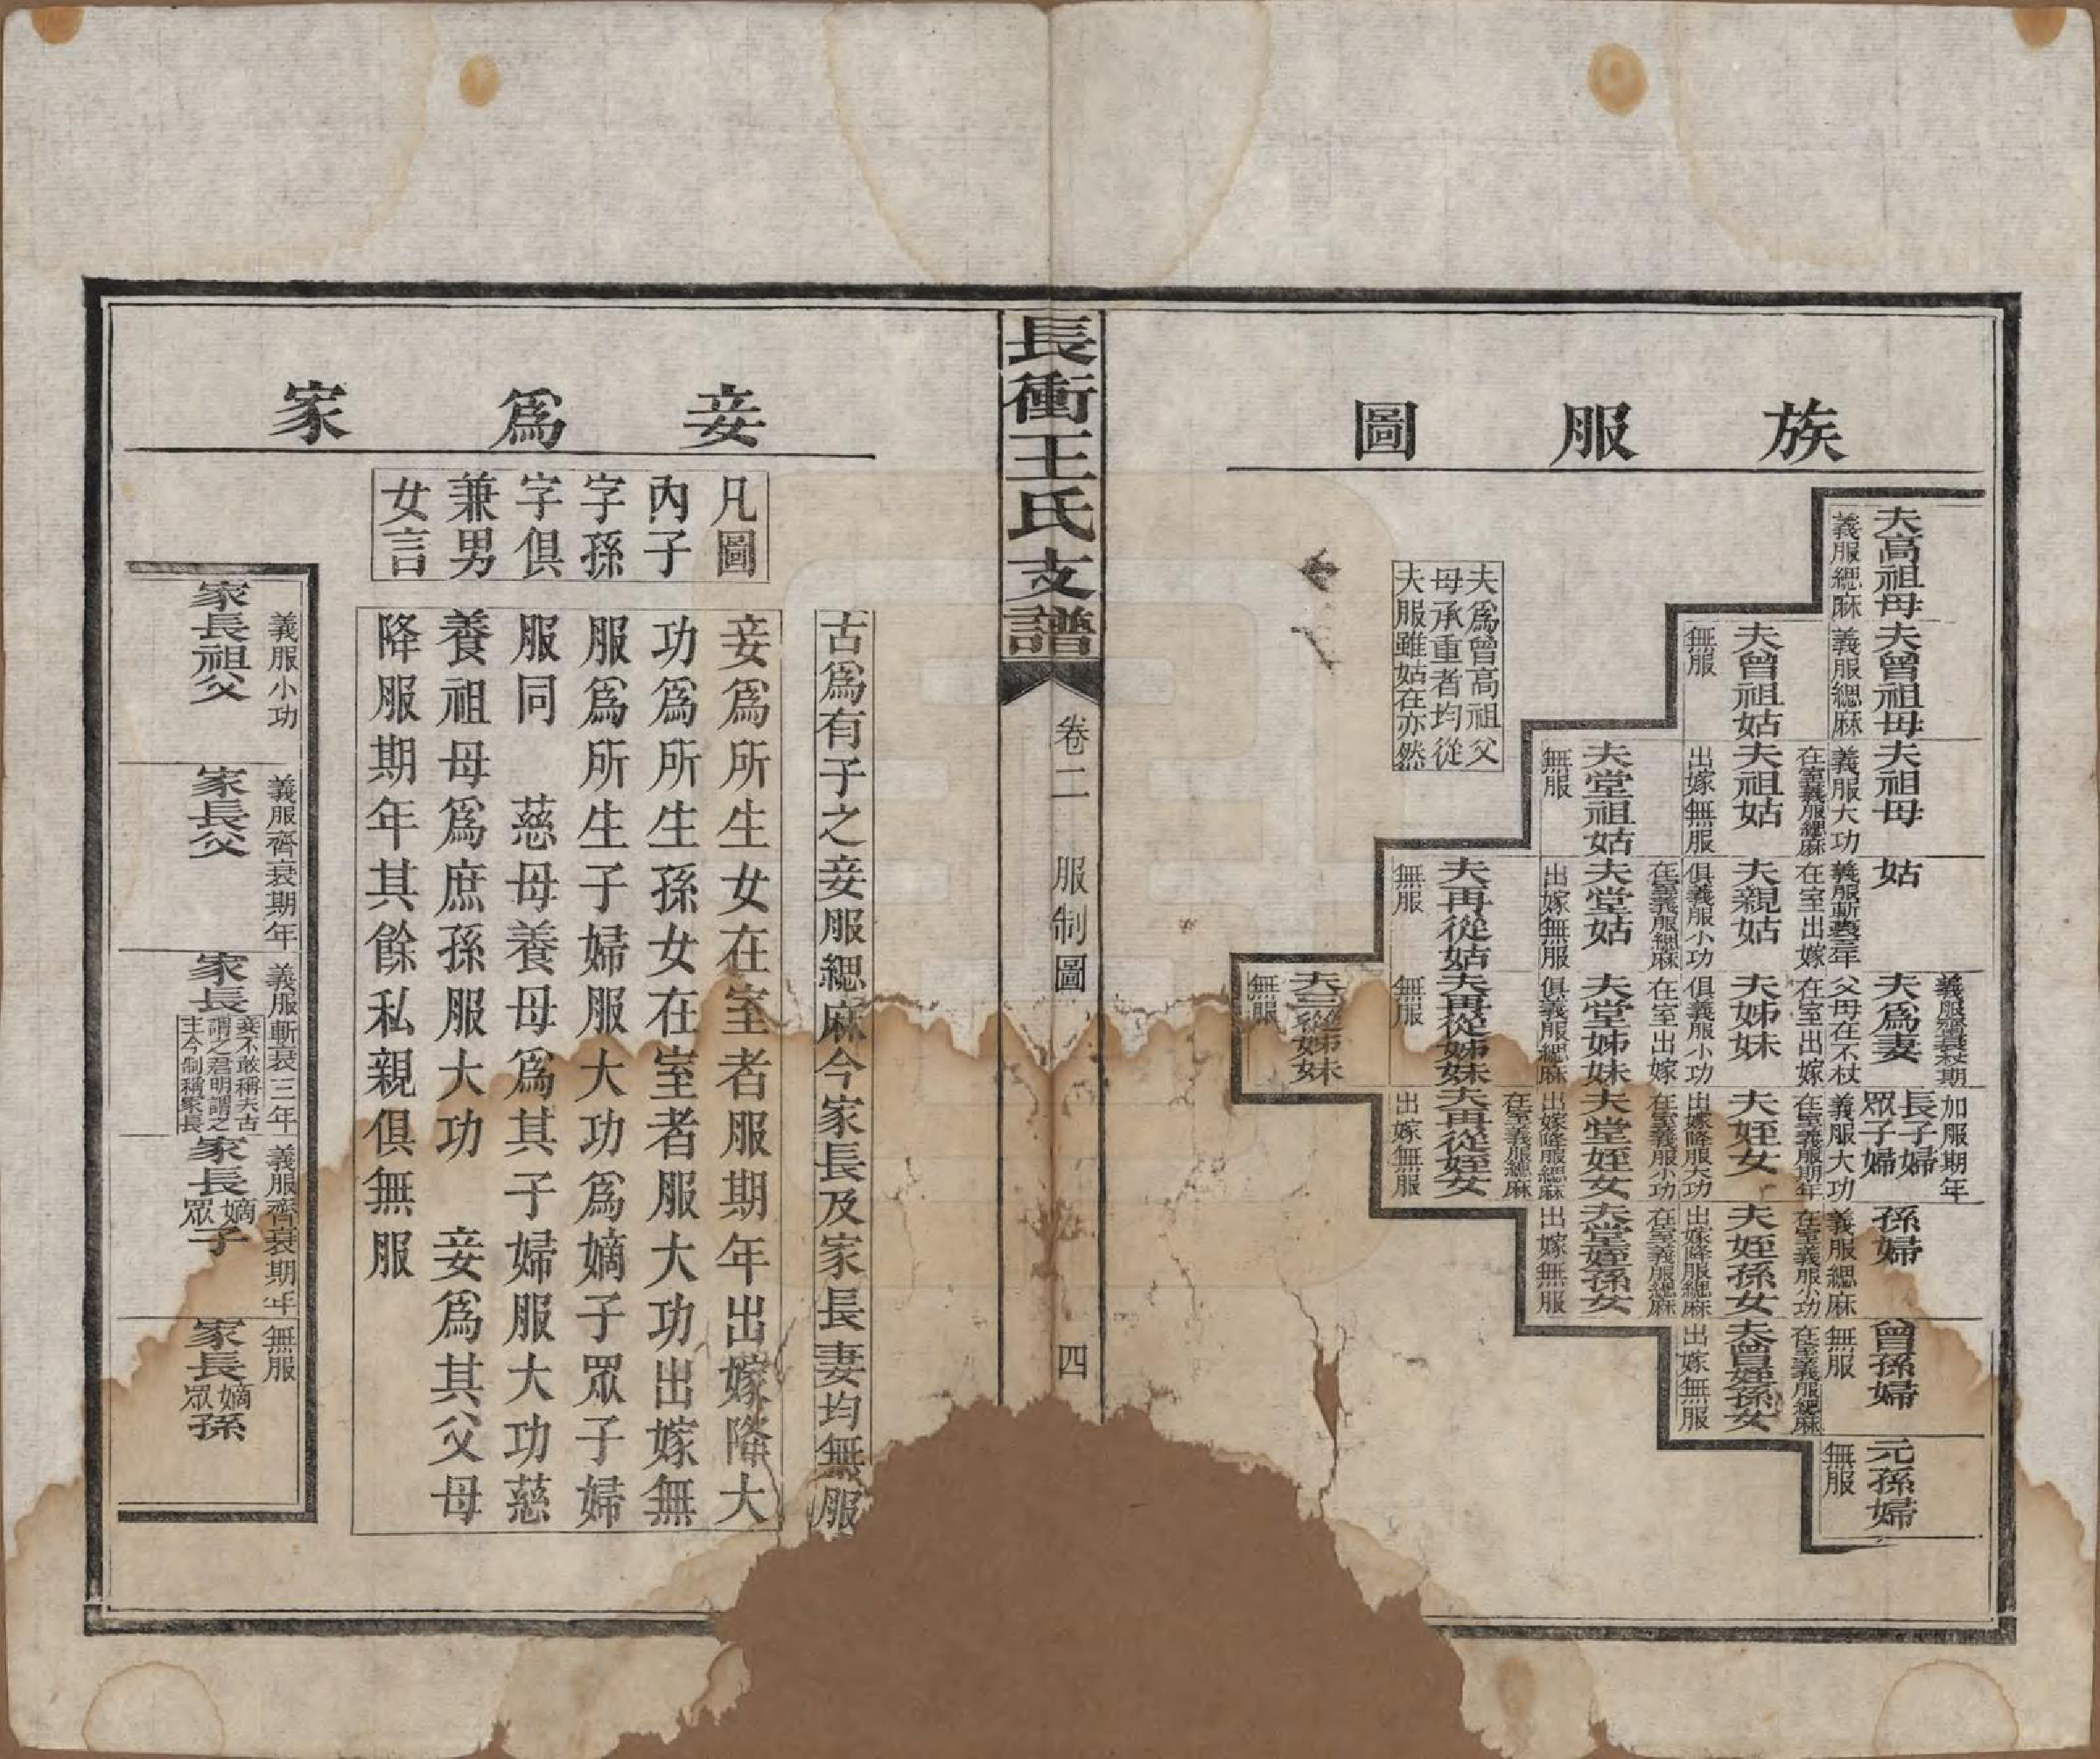 族服圖
夫高祖母
義服緦麻
夫曾祖母
義服緦麻
夫曾祖姑
無服
夫祖母
義服大功
夫祖姑
在室義服緦麻
出嫁無服
夫堂祖姑
無服
姑
義服斬衰三年
夫親姑
在室出嫁
俱義服小功
夫堂姑
在室義服緦麻
出嫁無服
夫再從姑
無服
夫為妻
義服齊衰杖期
父母在不杖
夫姊妹
在室出嫁
俱義服小功
夫堂姊妹
在室出嫁
俱義服緦麻
夫再從姊妹
無服
夫三從姊妹
無服
長子婦
加服期年
眾子婦
義服大功
夫姪女
在室義服期年
出嫁降服大功
夫堂姪女
在室義服小功
出嫁降服緦麻
夫再從姪女
在室義服緦麻
出嫁無服
孫婦
義服緦麻
夫姪孫女
在室義服小功
出嫁降服緦麻
夫堂姪孫女
在室義服緦麻
出嫁無服
曾孫婦
無服
夫曾姪孫女
在室義服緦麻
出嫁無服
元孫婦
無服
夫爲曾高祖父
母承重者均從
夫服雖姑在亦然
長衝王氏支譜
卷二 服制圖
四
妾爲家
古爲有子之妾服緦麻今家長及家長妻均無服
凡圖
內子
字孫
字俱
兼男
女言
妾爲所生女在室者服期年出嫁降大
功爲所生孫女在室者服大功出嫁無
服爲所生子婦服大功爲嫡子眾子婦
服同 慈母養母爲其子婦服大功慈
養祖母爲庶孫服大功 妾爲其父母
降服期年其餘私親俱無服
義服小功
家長祖父
義服齊衰期年
家長父
義服斬衰三年
家長
妾不敢稱夫古
謂之君明謂之
主今制稱家長
義服齊衰期年
家長嫡眾子
無服
家長嫡眾孫